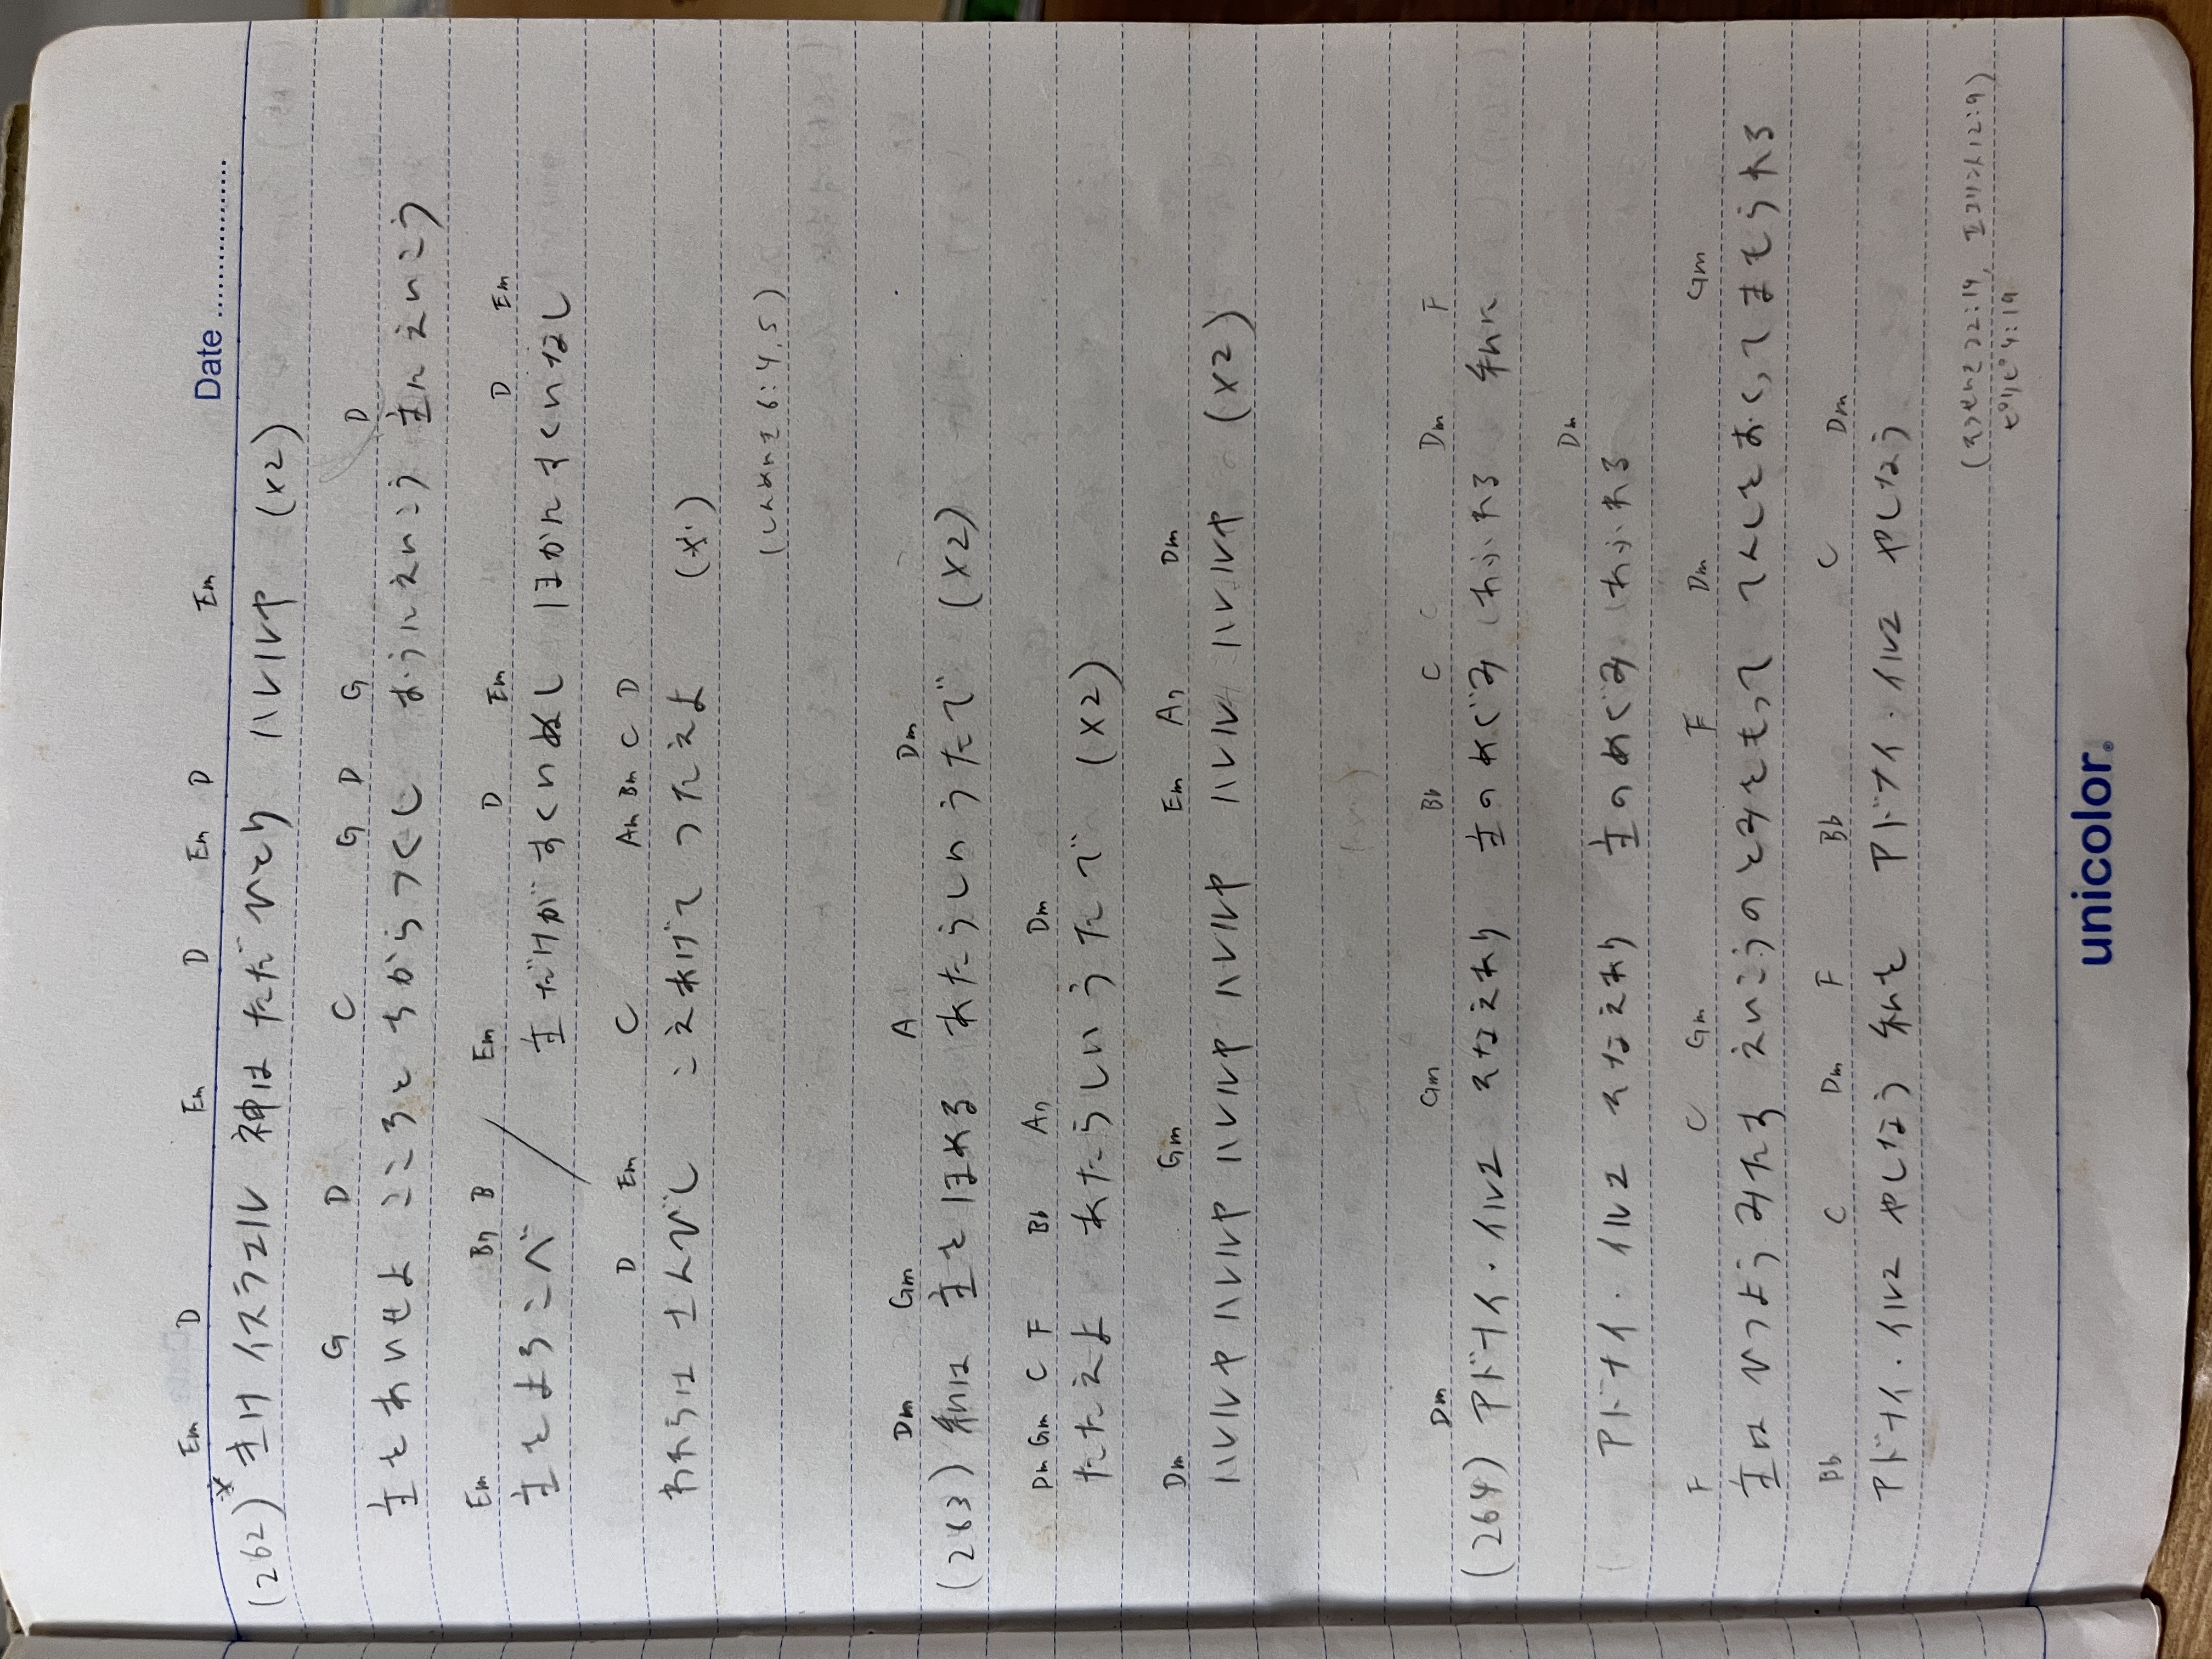 Date
Em D Em D Em D Em
(262)* きけ イスラエル 神は ただ ひとり ハレルヤ (x2)
G D C G D G D
主を あいせよ こころと ちから つくし おうに えいこう 主に えいこう
Em Bm B Em D Em D Em
主を よろこべ / 主だけが すくいぬし ほかに すくいなし
D Em C Am Bm C D
われらは さんびし こえあげて うたえよ
(しんめいき 6:4,5)
Dm Gm A Dm
(263) 私は 主を ほめる あたらしい うたで (x2)
Dm Gm C F Bb Am Dm
たたえよ あたらしい うたで (x2)
Dm Gm Em Am Dm
ハレルヤ ハレルヤ ハレルヤ ハレルヤ ハレルヤ ハレルヤ (x2)
Dm Gm Bb C C Dm F
(264) アドナイ・イルエ そなえあり 主の めぐみ あふれる 私に
Dm
アドナイ・イルエ そなえあり 主の めぐみ あふれる
F C Gm F Dm Gm
主は ひつよう みたす えいこうの とみを もって てんしを おくって まもられる
Bb C Dm F Bb C Dm
アドナイ・イルエ やしなう 私を アドナイ・イルエ やしなう
(そうせいき 22:14, Ⅱコリント12:9)
ピリピ 4:19
unicolor.